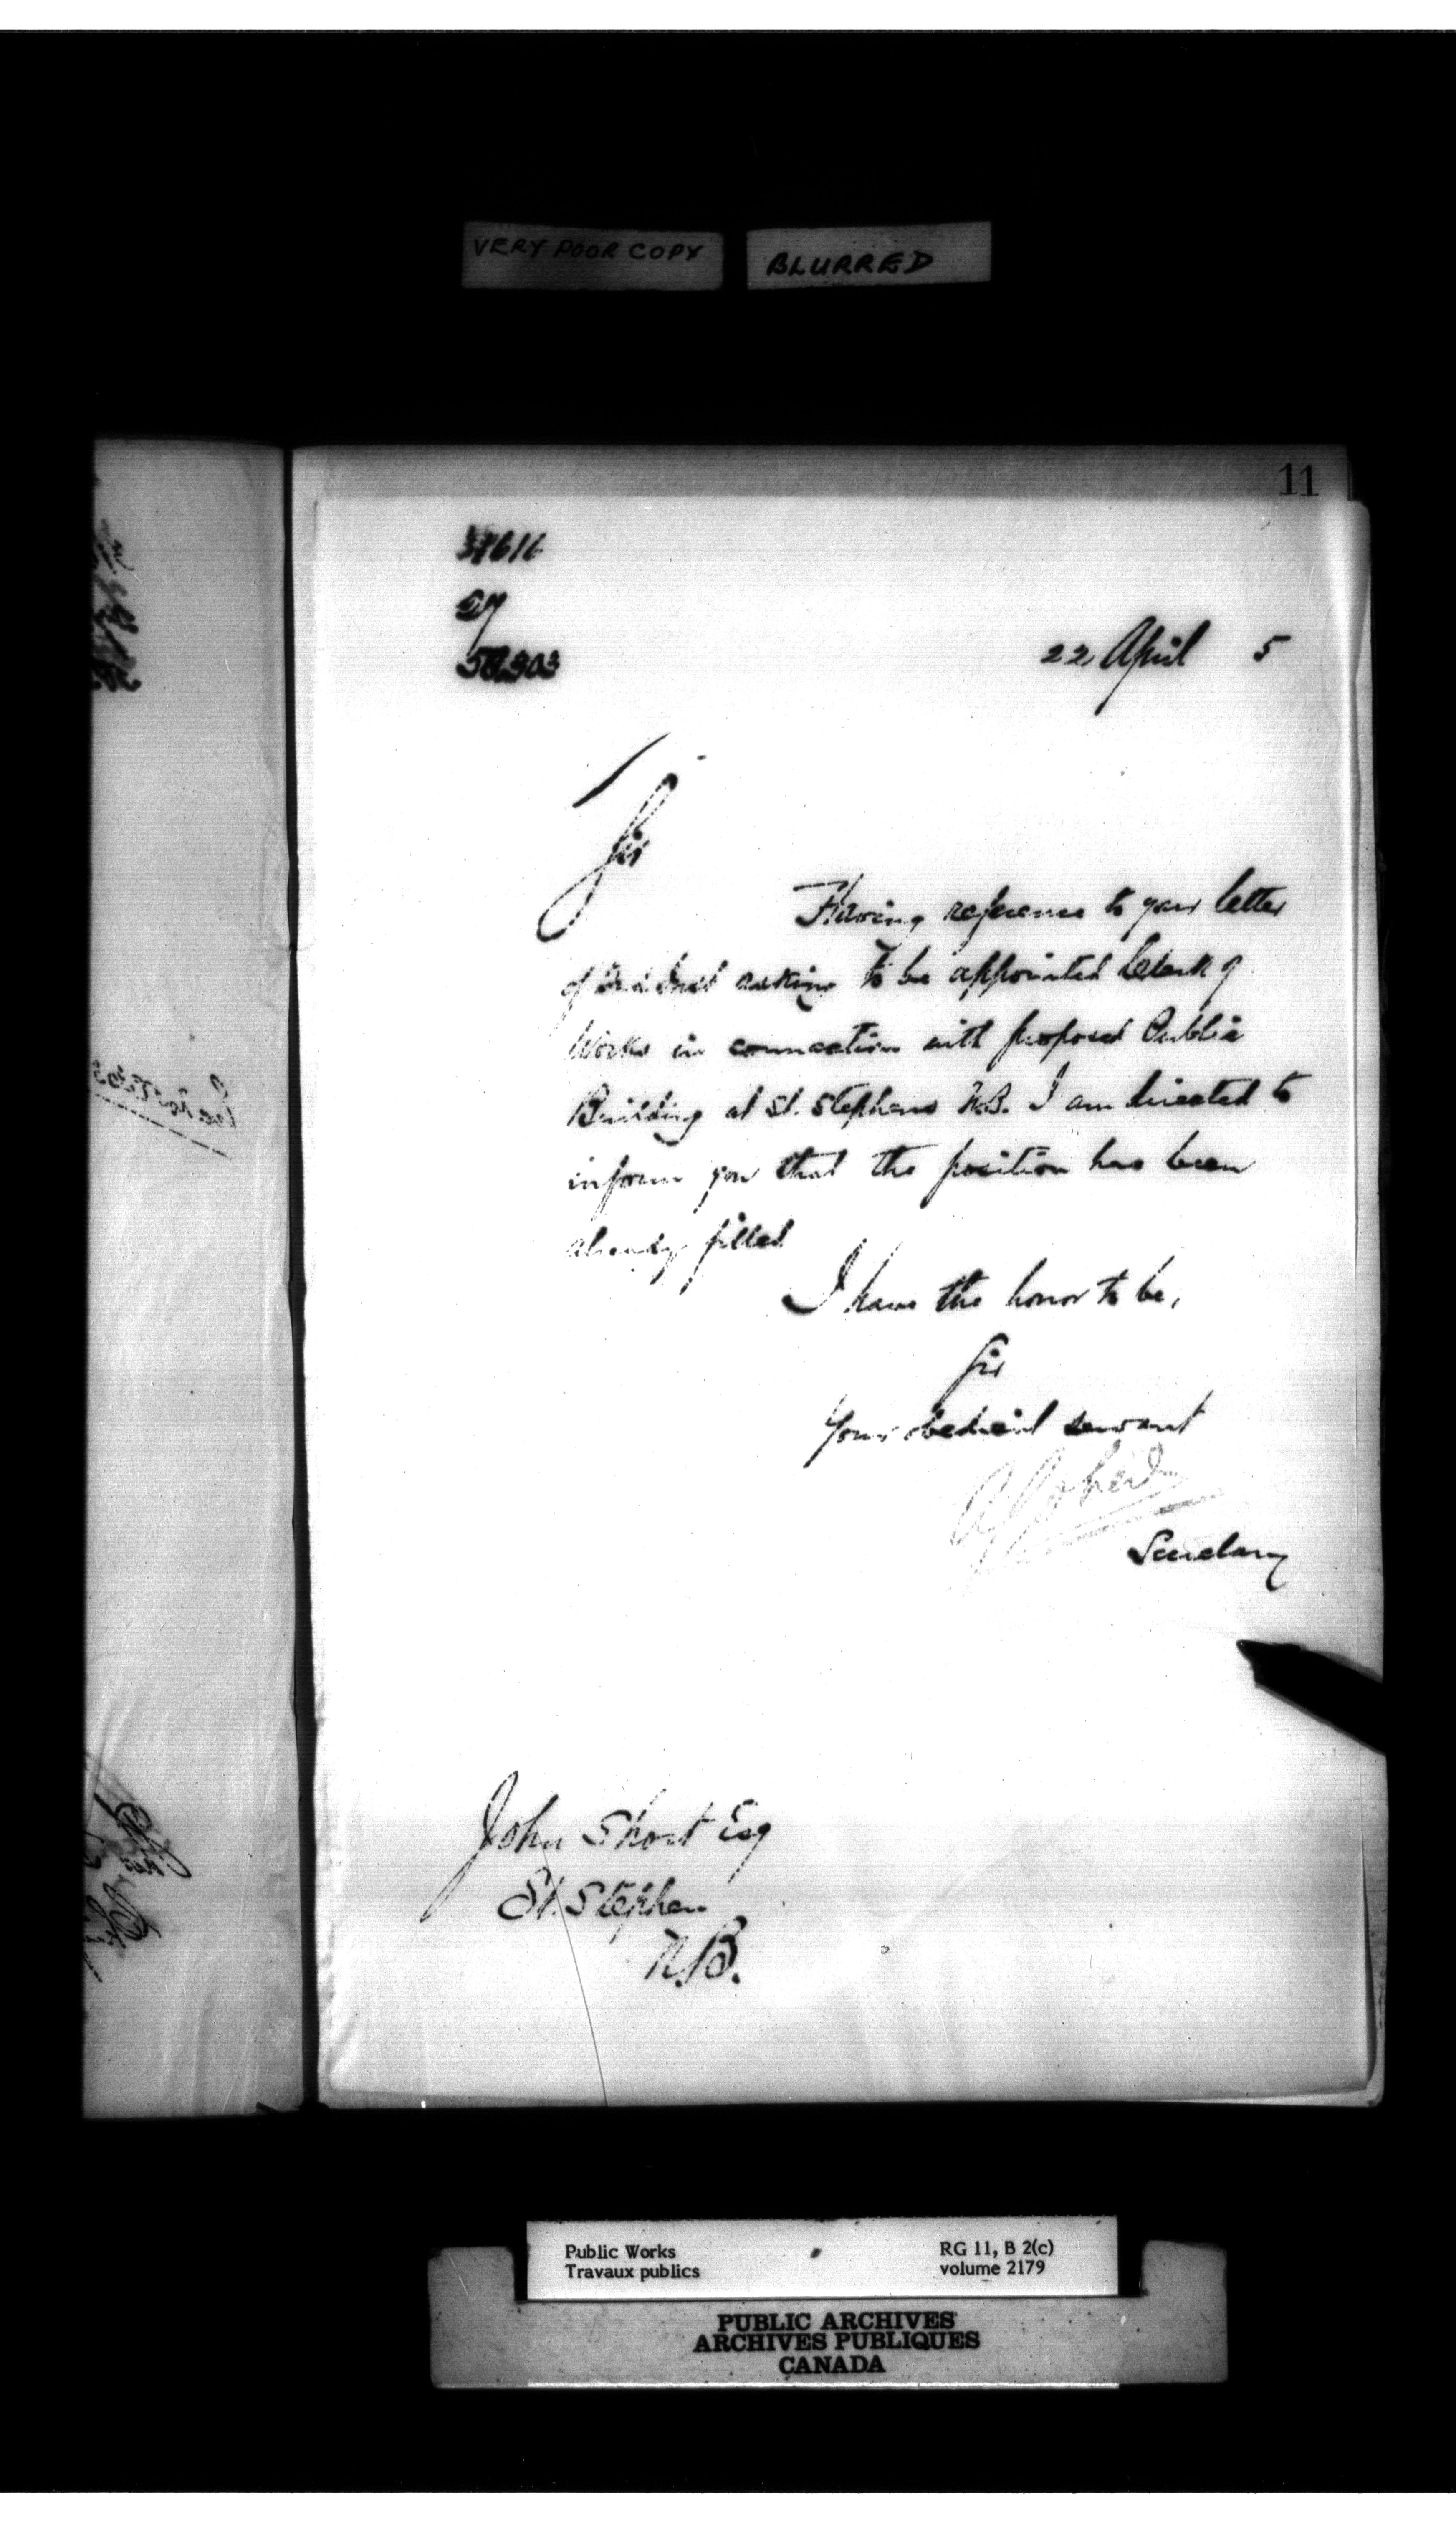 VERY POOR COPY BLURRED
11
22 April 5
Sir
Having reference to your letter
of asking to be appointed Clerk of
Works in connection with proposed Public
Building at St. Stephens N.B. I am directed to
inform you that the position has been
already filled
I have the honor to be,
Sir
Your obedient servant
Secretary
John Short Esq
St. Stephen
N.B.
Public Works
Travaux publics
RG 11, B 2(c)
volume 2179
PUBLIC ARCHIVES
ARCHIVES PUBLIQUES
CANADA